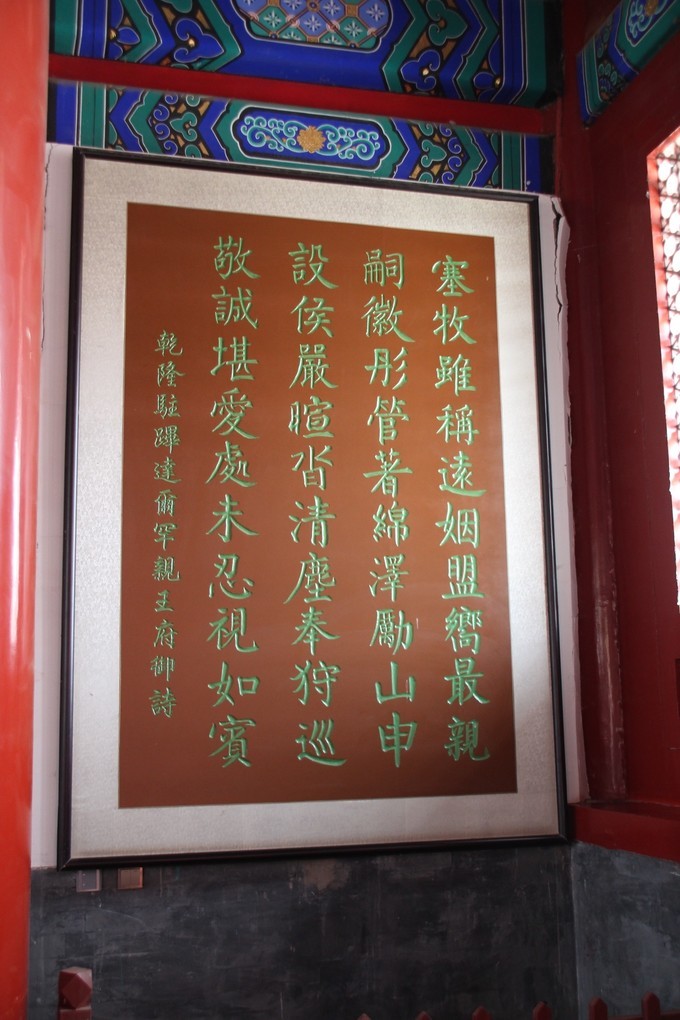 塞牧雖稱遠姻盟嚮最親
嗣徽彤管著綿澤勵山申
設侯嚴暄沓清塵奉狩巡
敬誠堪愛處未忍視如賓
乾隆駐蹕達爾罕親王府御詩